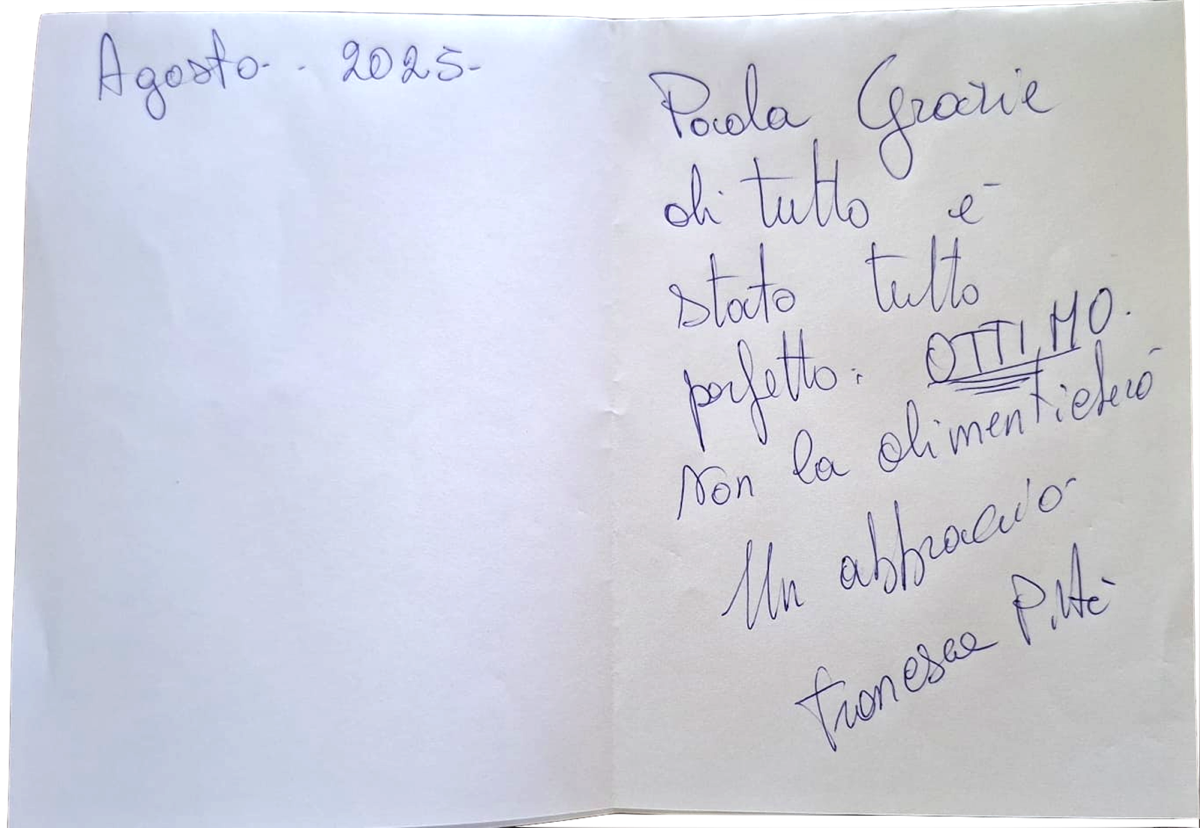 Agosto. . 2025-
Paola Grazie
di tutto è
stato tutto
perfetto. OTTIMO.
Non la dimenticherò
Un abbraccio
Francesca